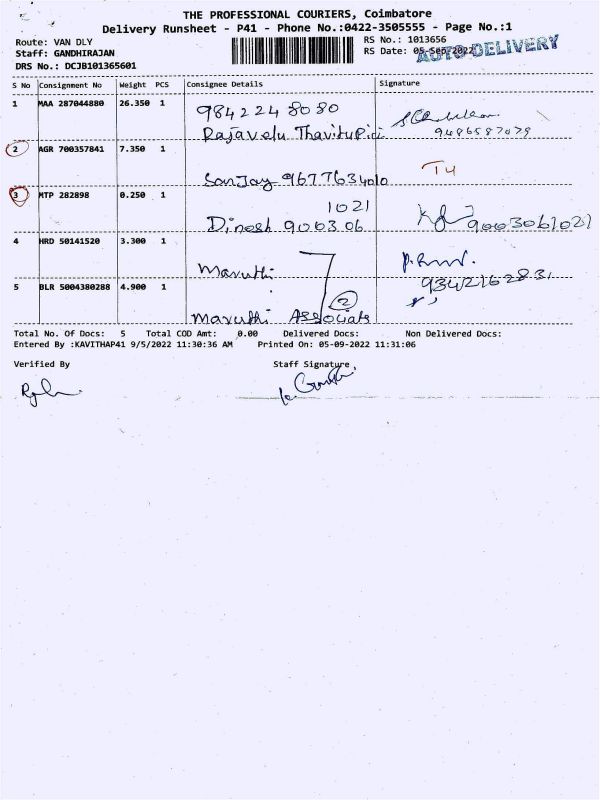 THE PROFESSIONAL COURIERS, Coimbatore
Delivery Runsheet - P41 - Phone No.:0422-3505555 - Page No.:1
Route: VAN DLY
RS No.: 1013656
Staff: GANDHIRAJAN
RS Date: 05-Sep-2022
AUTO DELIVERY
DRS No.: DCJB101365601
S No Consignment No Weight PCS Consignee Details Signature
1 MAA 287044880 26.350 1 984224 8080
Rajavelu 9486587079
2 AGR 700357841 7.350 1
Sanjay 9677634010
3 MTP 282898 0.250 1 1021
Dinesh 9003 06 9003061021
4 HRD 50141520 3.300 1
Maruthi
5 BLR 5004380288 4.900 1 2
Maruthi Associats
Total No. Of Docs: 5 Total COD Amt: 0.00 Delivered Docs: Non Delivered Docs:
Entered By :KAVITHAP41 9/5/2022 11:30:36 AM Printed On: 05-09-2022 11:31:06
Verified By Staff Signature